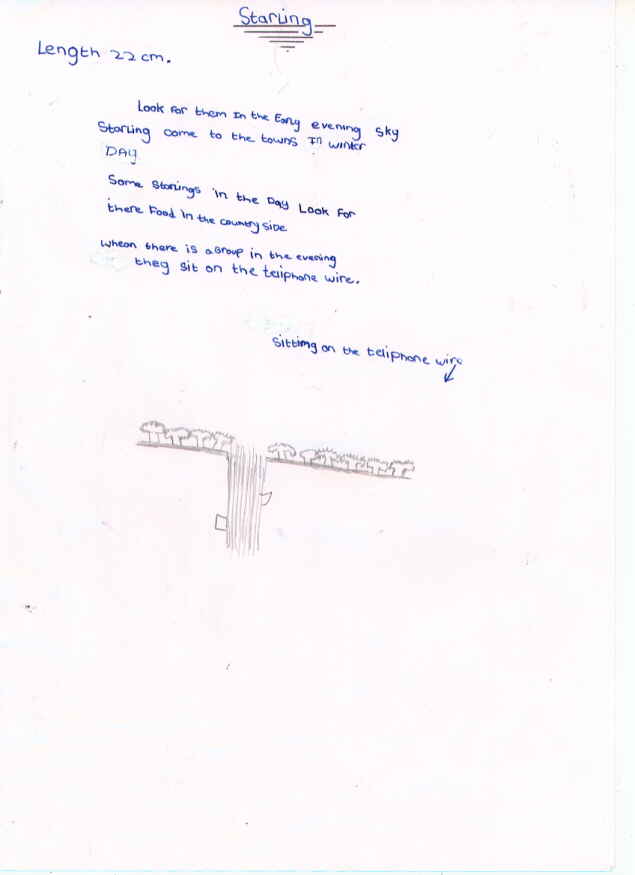 Starling
Length 22cm.
Look for them In the Early evening sky
Starling come to the towns In winter
DAY
Some Starlings in the Day Look for
there Food in the countryside
whean there is a Group in the evening
they sit on the teliphone wire.
Sitting on the teliphone wire